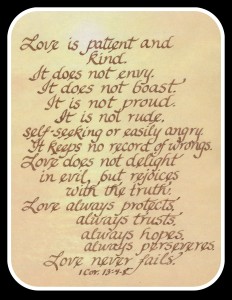 Love is patient and
kind.
It does not envy.
It does not boast.
It is not proud.
It is not rude,
self-seeking or easily angry.
It keeps no record of wrongs.
Love does not delight
in evil, but rejoices
with the truth.
Love always protects,
always trusts,
always hopes,
always perseveres.
Love never fails.
1 Cor. 13:4-8